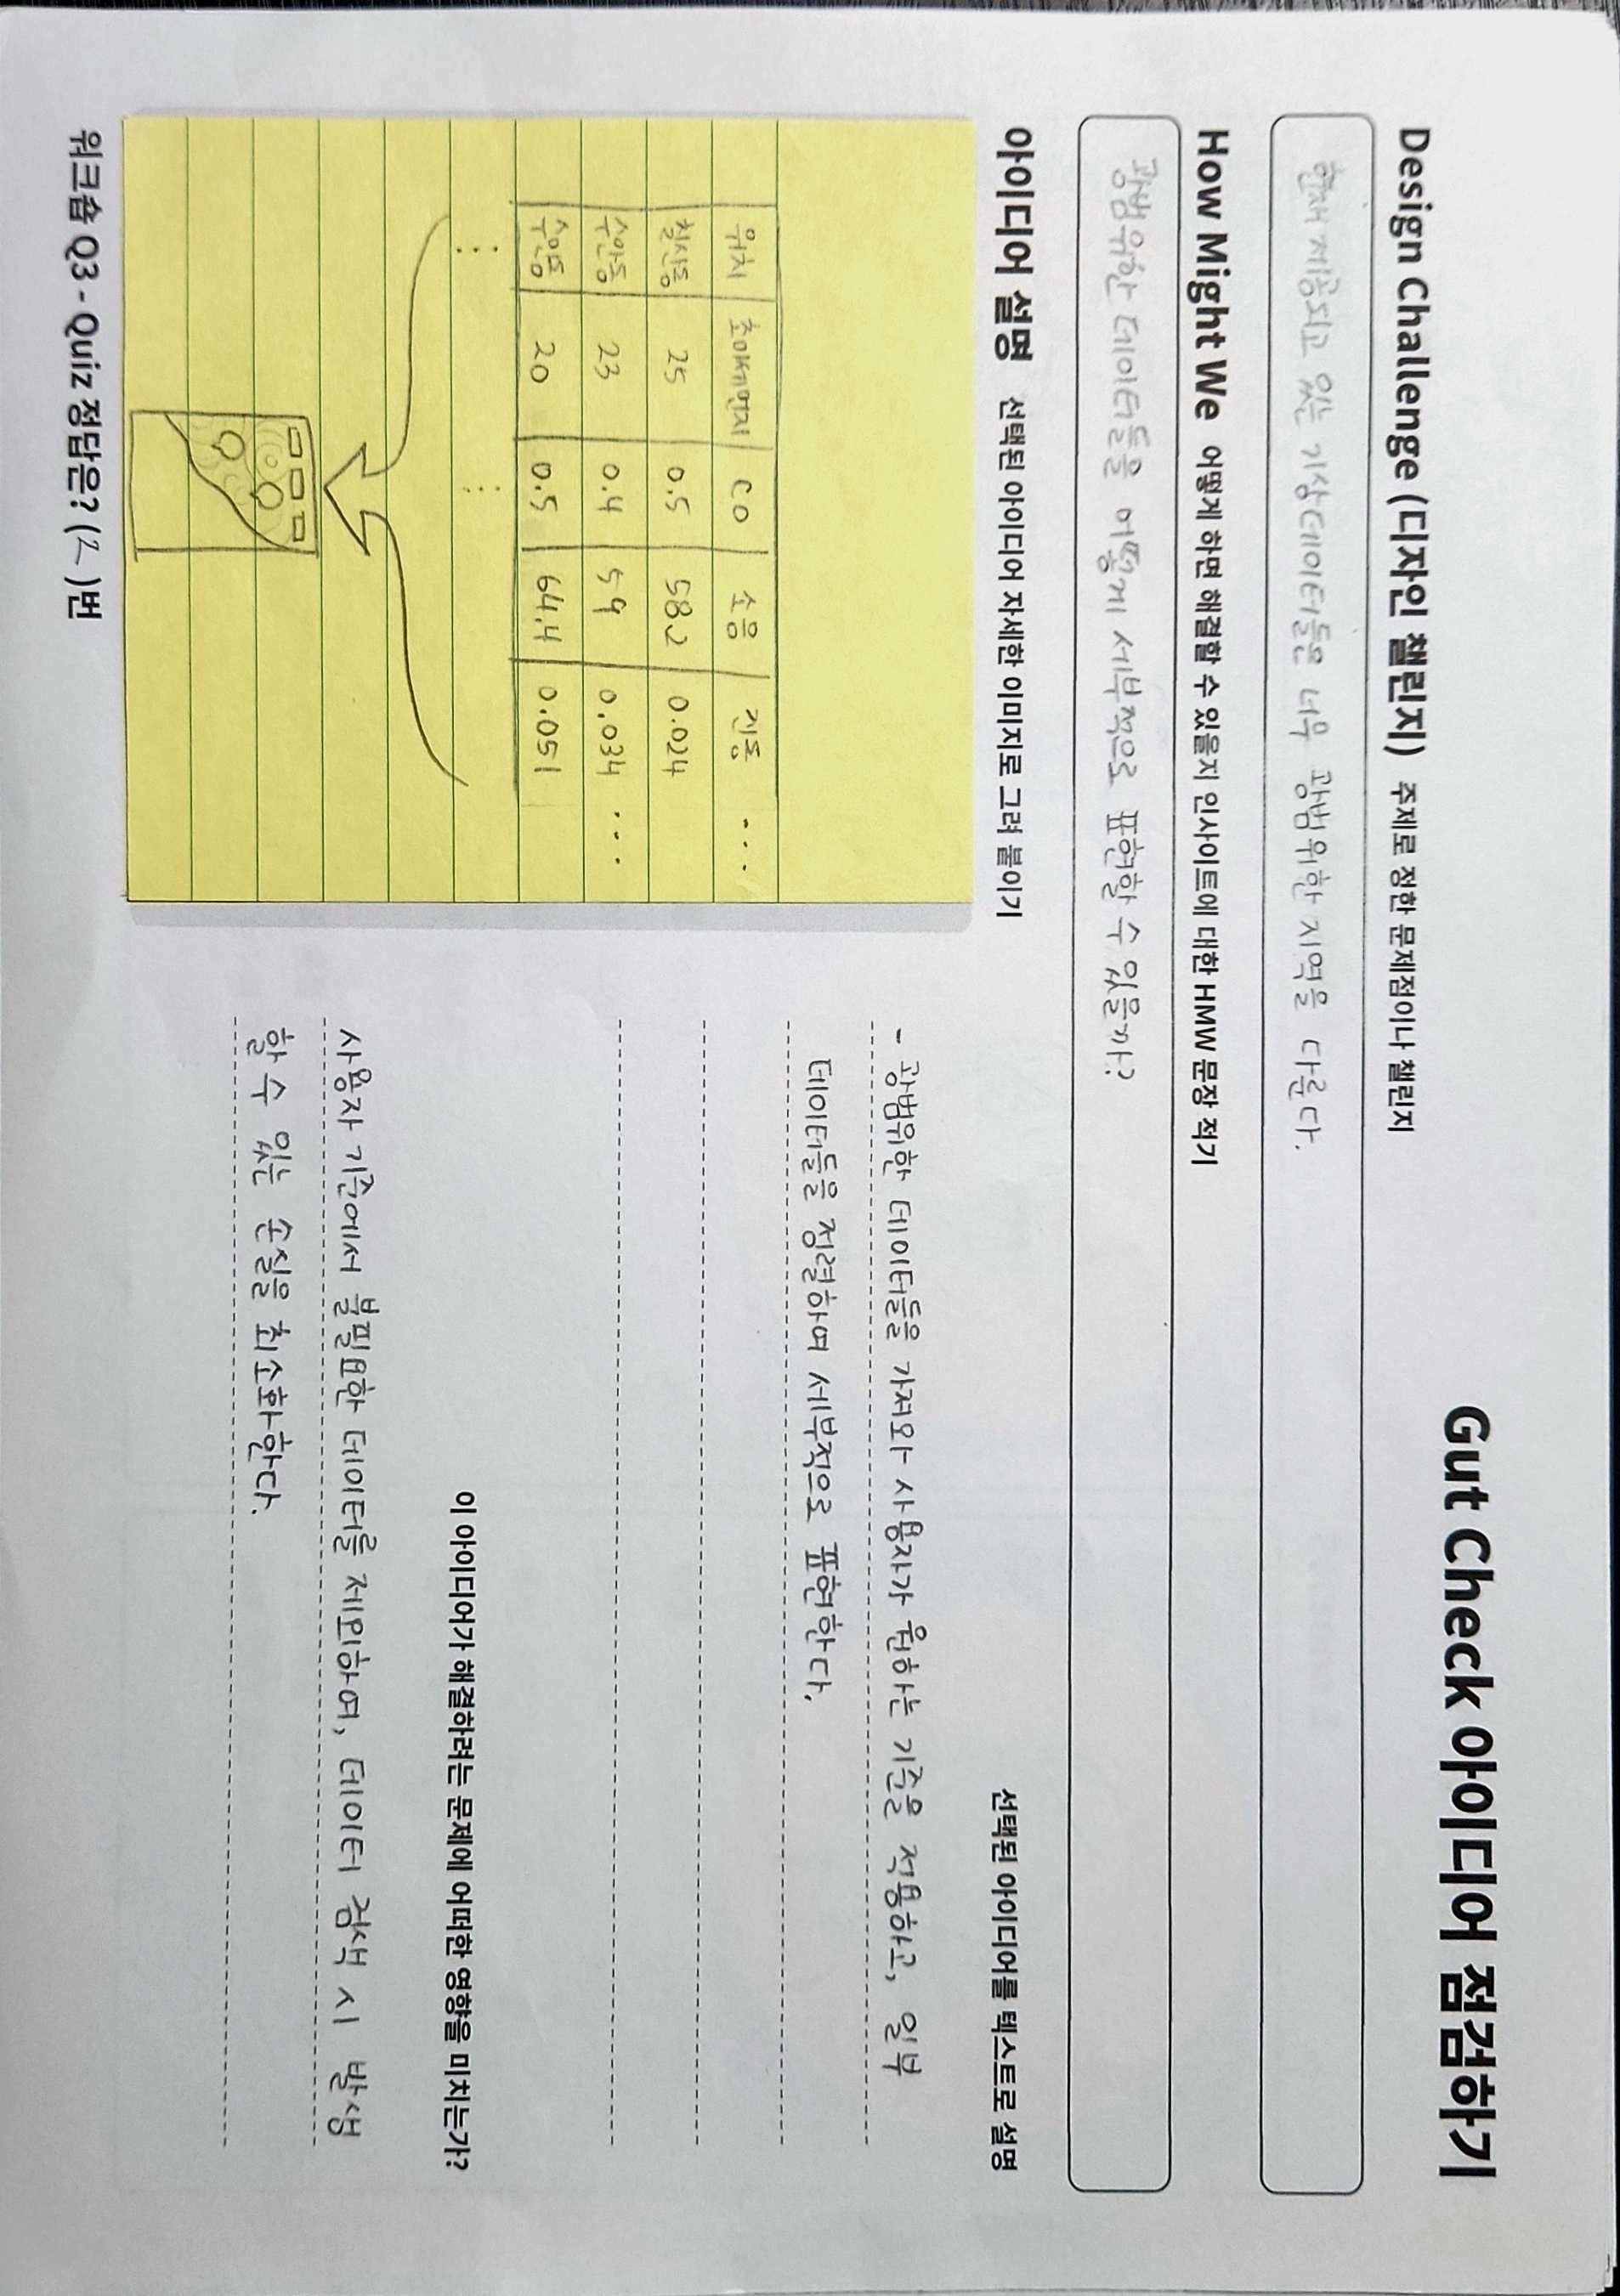 Gut Check 아이디어 점검하기
Design Challenge (디자인 챌린지) 주제로 정한 문제점이나 챌린지
현재 제공되고 있는 기상데이터들은 너무 광범위한 지역을 다룬다.
How Might We 어떻게 하면 해결할 수 있을지 인사이트에 대한 HMW 문장 적기
광범위한 데이터들을 어떻게 세부적으로 표현할 수 있을까?
아이디어 설명 선택된 아이디어 자세한 이미지로 그려 붙이기
위치 초미세먼지 CO 소음 진동 ...
칠산동 25 0.5 58.2 0.024
수완동 23 0.4 59 0.034 ...
20 0.5 64.4 0.051
선택된 아이디어를 텍스트로 설명
- 광범위한 데이터들을 가져와 사용자가 원하는 기준을 적용하고, 일부
데이터들을 정렬하여 세부적으로 표현한다.
이 아이디어가 해결하려는 문제에 어떠한 영향을 미치는가?
사용자 기준에서 불필요한 데이터를 제외하여, 데이터 검색 시 발생
할 수 있는 손실을 최소화한다.
워크숍 Q3 - Quiz 정답은? (2)번